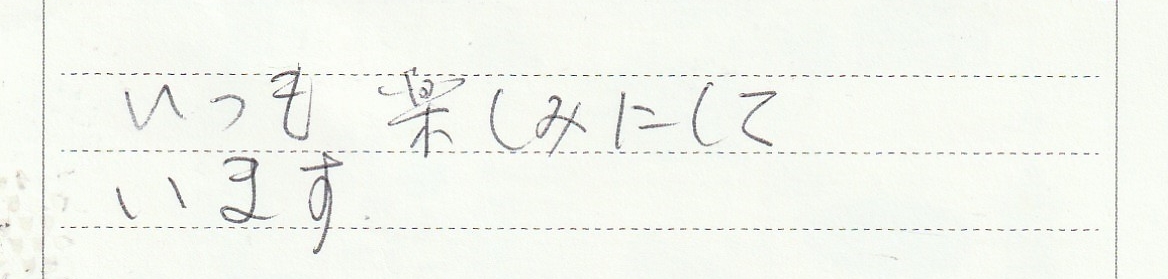 いつも楽しみにして
います.